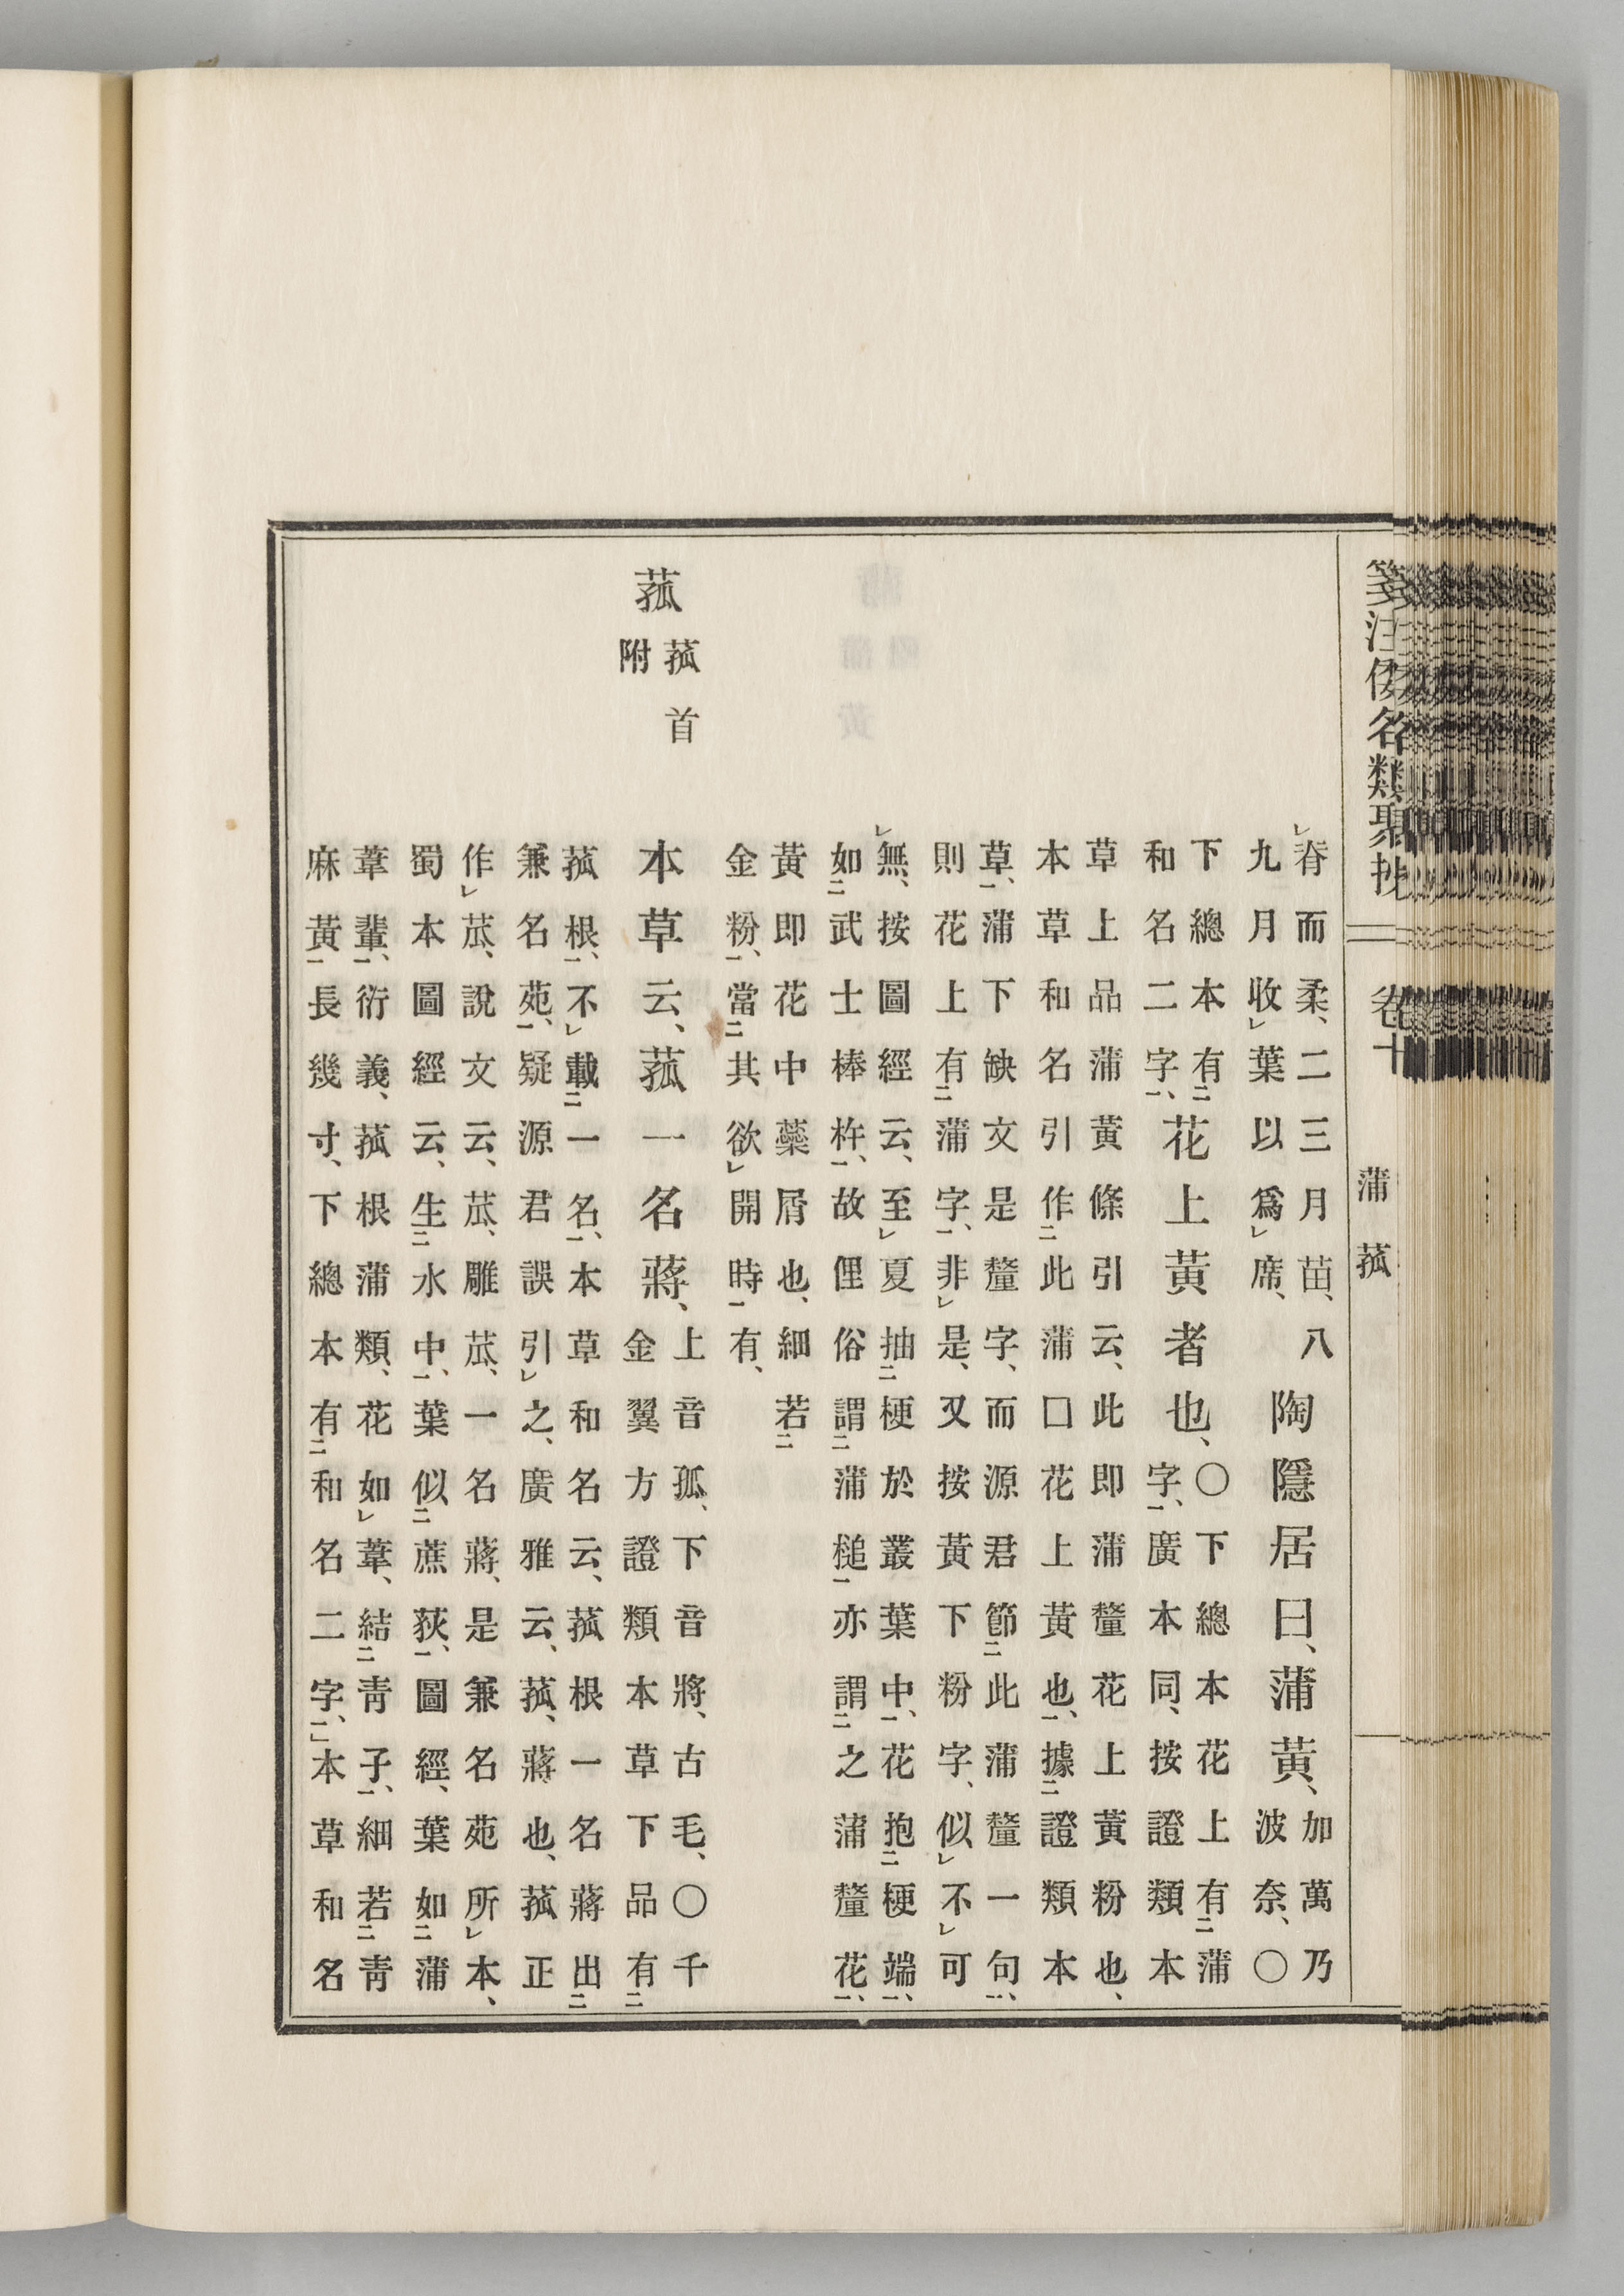 箋注倭名類聚抄 卷十 蒲 菰
脊而柔、二三月苗、八
九月收葉以爲席、
陶隱居曰、蒲黃、
加萬乃
波奈、〇
下總本有
和名二字、
花上黃者也、
〇下總本花上有蒲
字、廣本同、按證類本
草上品蒲黃條引云、此即蒲釐花上黃粉也、
本草和名引作此蒲囗花上黃也、據證類本
草、蒲下缺文是釐字、而源君節此蒲釐一句、
則花上有蒲字、非是、又按黃下粉字、似不可
無、按圖經云、至夏抽梗於叢葉中、花抱梗端、
如武士棒杵、故俚俗謂蒲槌亦謂之蒲釐花、
黃即花中蘂屑也、細若
金粉、當其欲開時有、
菰
菰首
附
本草云、菰一名蔣、
上音孤、下音將、古毛、〇千
金翼方證類本草下品有
菰根、不載一名、本草和名云、菰根一名蔣出
兼名苑、疑源君誤引之、廣雅云、菰、蔣也、菰正
作苽、說文云、苽、雕苽、一名蔣、是兼名苑所本、
蜀本圖經云、生水中、葉似蔗荻、圖經、葉如蒲
葦輩、衍義、菰根蒲類、花如葦、結青子、細若青
麻黃長幾寸、下總本有和名二字、本草和名